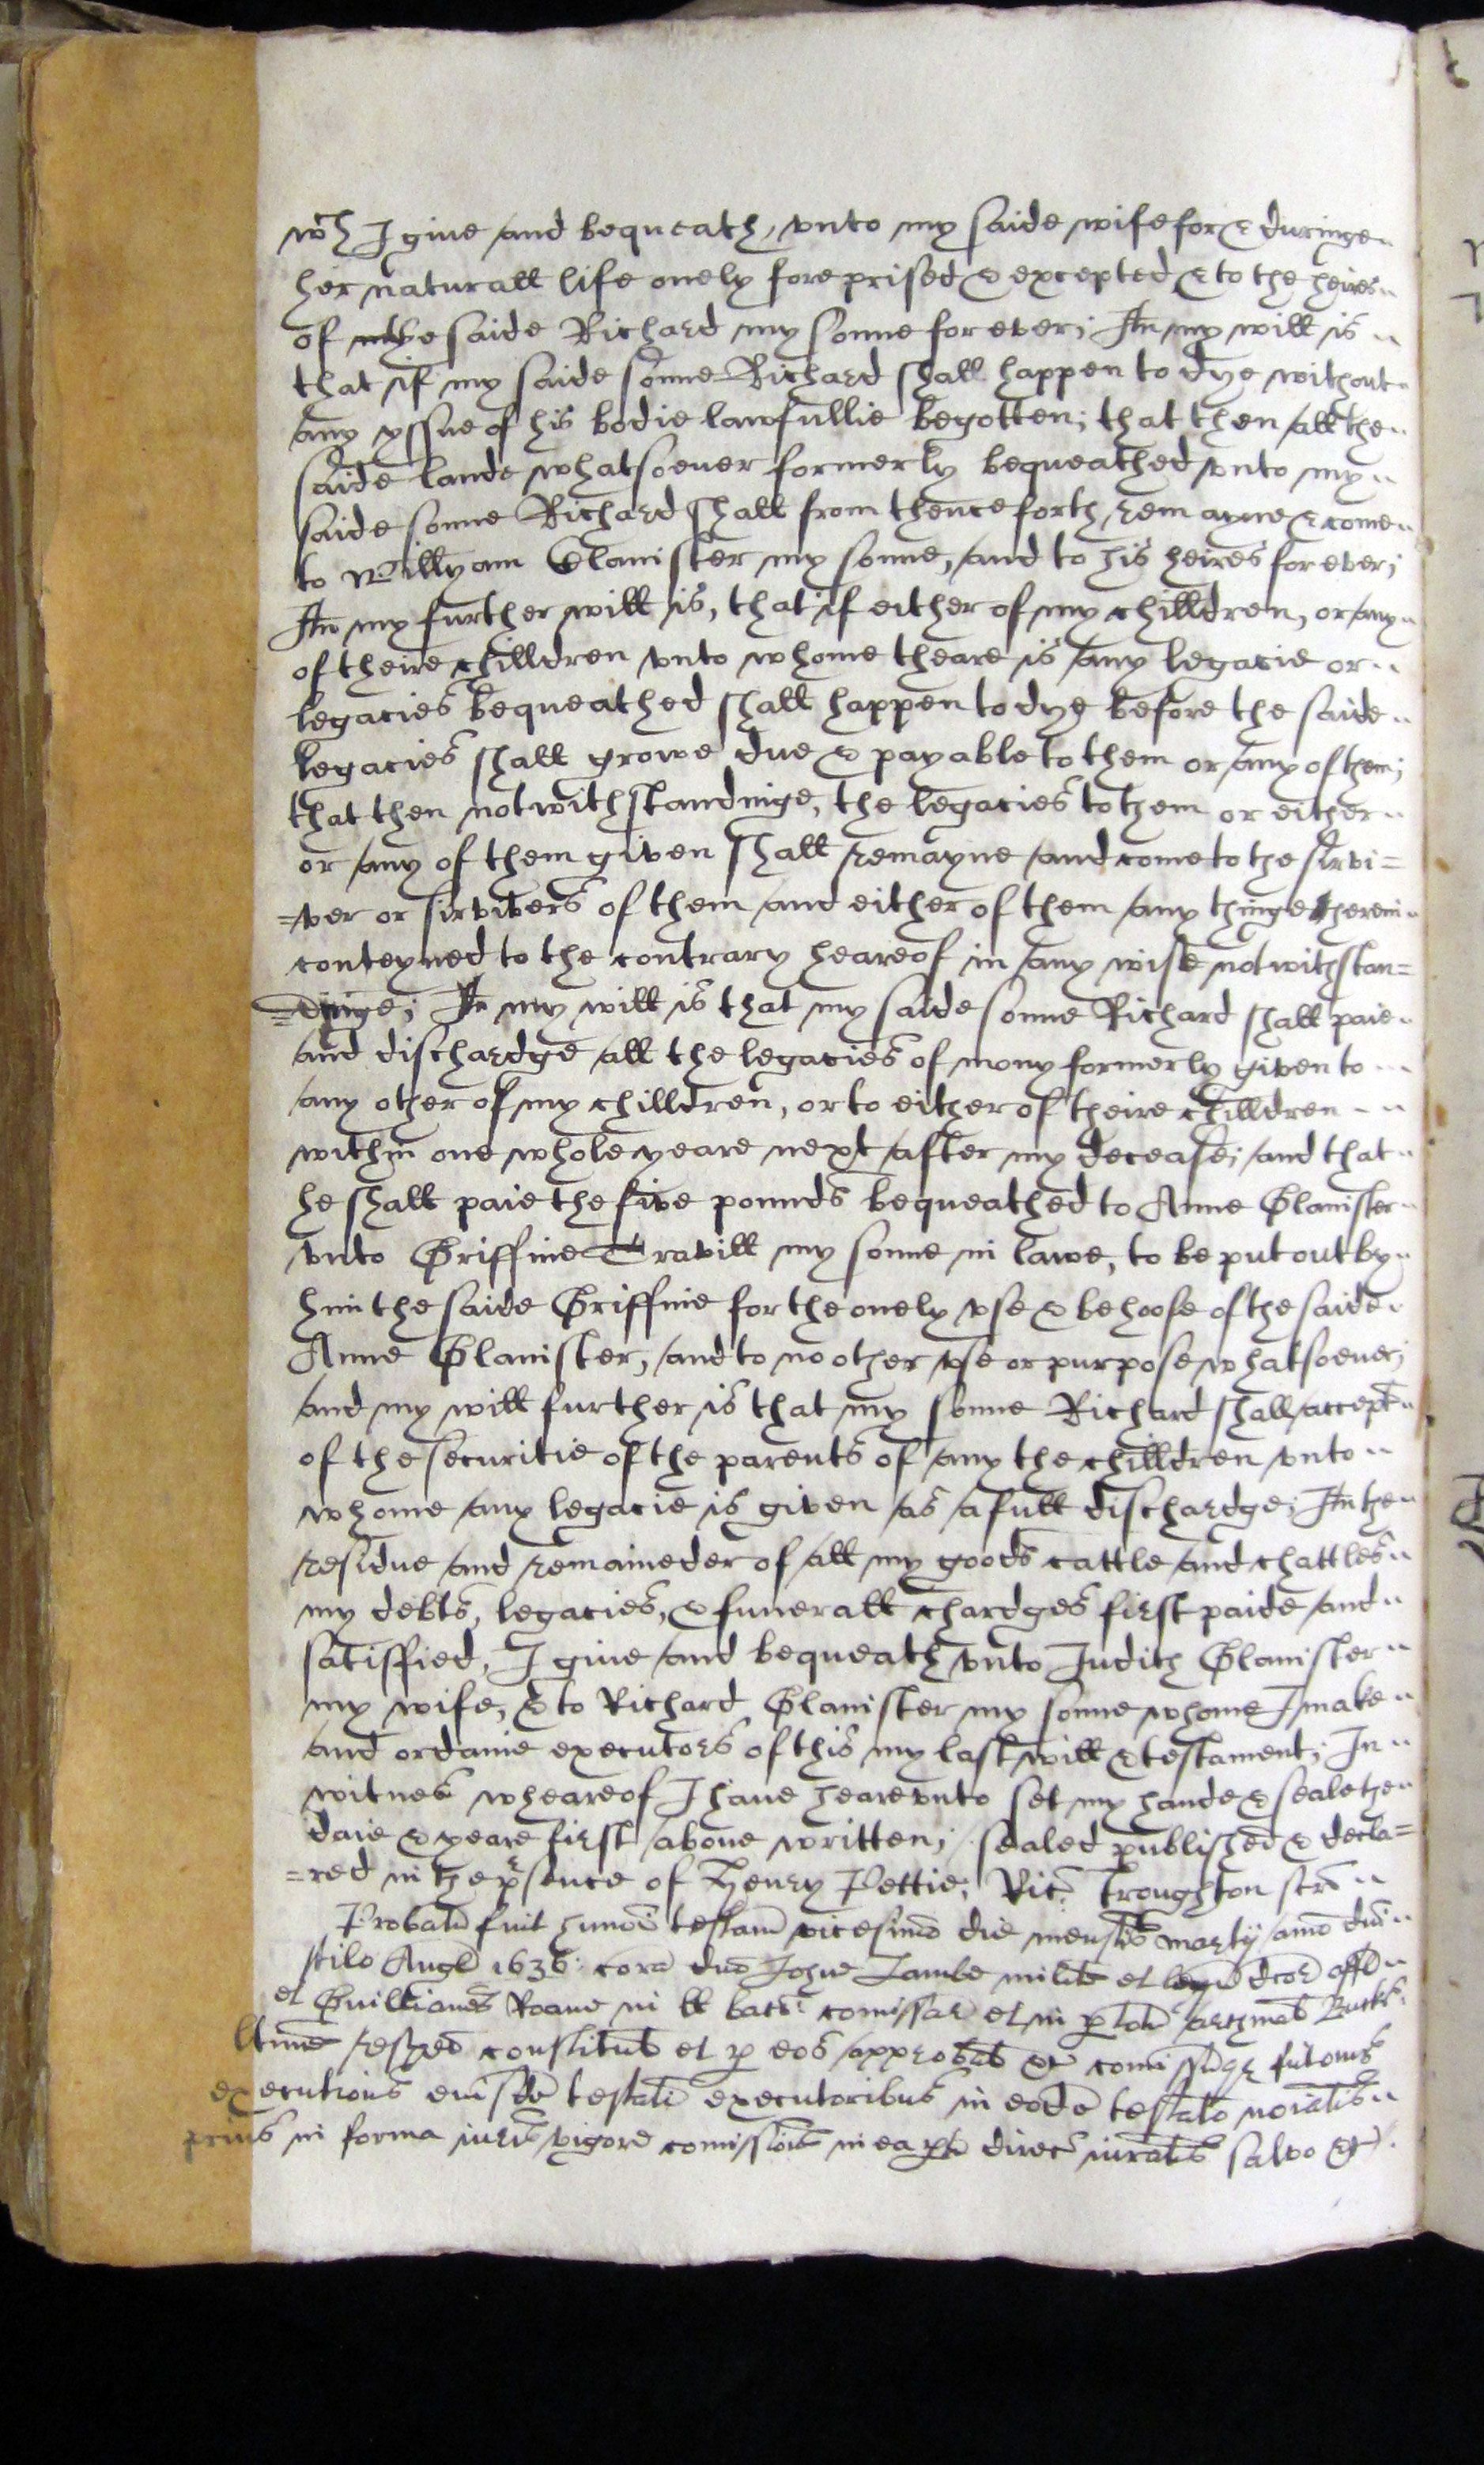 wch I giue and bequeath, vnto my saide wife for & duringe
her naturall life onely foreprised & excepted & to the heires
of the saide Richard my sonne for ever; Itm my will is
that if my saide sonne Richard shall happen to dye without
any yssue of his bodie lawfullie begotten; that then all the
saide lande whatsoever formerly bequeathed vnto my
saide sonne Richard shall from thenceforth remayne & come
to Willyam Glanister my sonne, and to his heires for ever;
Itm my further will is, that if either of my chilldren, or any
of theire chilldren vnto whome theare is any legacie or
legacies bequeathed shall happen to dye before the saide
legacies shall growe due & payable to them or any of them;
that then notwithstandinge, the legacies to them or either
or any of them given shall remayne and come to the sirvi=
=ver or sirvivers of them and either of them any thinge herein
conteyned to the contrary heareof in any wise notwithstan=
=dinge; It my will is that my saide sonne Richard shall paie
and dischardge all the legacies of mony formerly given to
any other of my chilldren, or to either of theire chilldren
within one whole yeare next after my decease; and that
he shall paie the five pounds bequeathed to Anne Glanister
vnto Griffine Travill my sonne in lawe, to be put out by
him the saide Griffine for the onely vse & behoofe of the saide
Anne Glanister, and to no other vse or purpose whatsoever;
and my will further is that my sonne Richard shall accept
of the securitie of the parents of any the chilldren vnto
whome any legacie is given as a full dischardge; Itm the
residue and remaineder of all my goods cattle and chattles
my debts, legacies, & funerall chardges first paide and
satisfied, I giue and bequeath vnto Judith Glanister
my wife, & to Richard Glanister my sonne whome I make
and ordaine executors of this my last will & testament; In
witnes wheareof I haue heareunto set my hande & seale the
daie & yeare first aboue written; sealed published & decla=
=red in the psence of Henry Pettie; Ric: Troughton scr
Probatu fuit humoi testam vicesimo die mensis martij anno dni
stilo Angl 1636: cora dno Johne Lambe milite et legu dcore
et Guilliamo Roane in ll bacc: comissar et in p totu archinat Bucks
ltime respect constitut et p eos approbat &c comissa fuit onus
executionis eiusde testati executoribus in eode testato noiatis
prius in forma iuris vigore comissionis in ea pte direct iuratis salvo &c